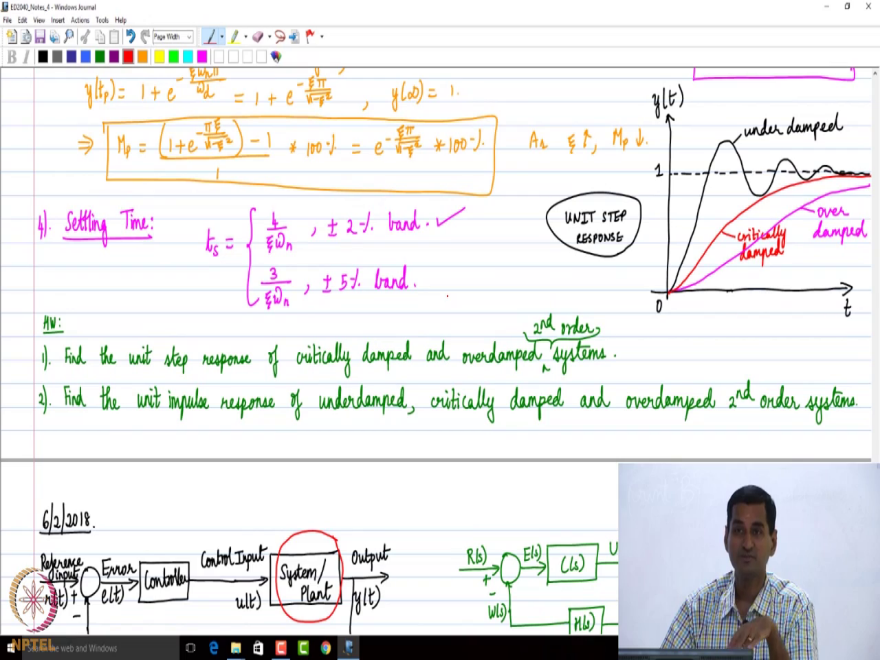 ED2040_Notes_4 - Windows Journal
File Edit View Insert Actions Tools Help
Page Width
B I
y(tp) = 1 + e^{-ξωnπ/ωd} = 1 + e^{-ξπ/√(1-ξ²)}, y(∞) = 1.
⇒ Mp = ((1+e^{-πξ/√(1-ξ²)}) - 1)/1 * 100 % = e^{-ξπ/√(1-ξ²)} * 100 %. As ξ ↑, Mp ↓.
4). Settling Time:
ts = { 4/(ξωn), ± 2 % band. ✓
3/(ξωn), ± 5 % band.
y(t)
under damped
1
UNIT STEP
RESPONSE
over
damped
critically
damped
0
t
HW:
2nd order
1). Find the unit step response of critically damped and overdamped systems.
2). Find the unit impulse response of underdamped, critically damped and overdamped 2nd order systems.
6/2/2018.
Reference
input
r(t) +
-
Error
e(t)
Controller
Control Input
u(t)
System/
Plant
Output
y(t)
R(s)
+
-
W(s)
E(s)
C(s)
U
H(s)
NPTEL
Search the web and Windows